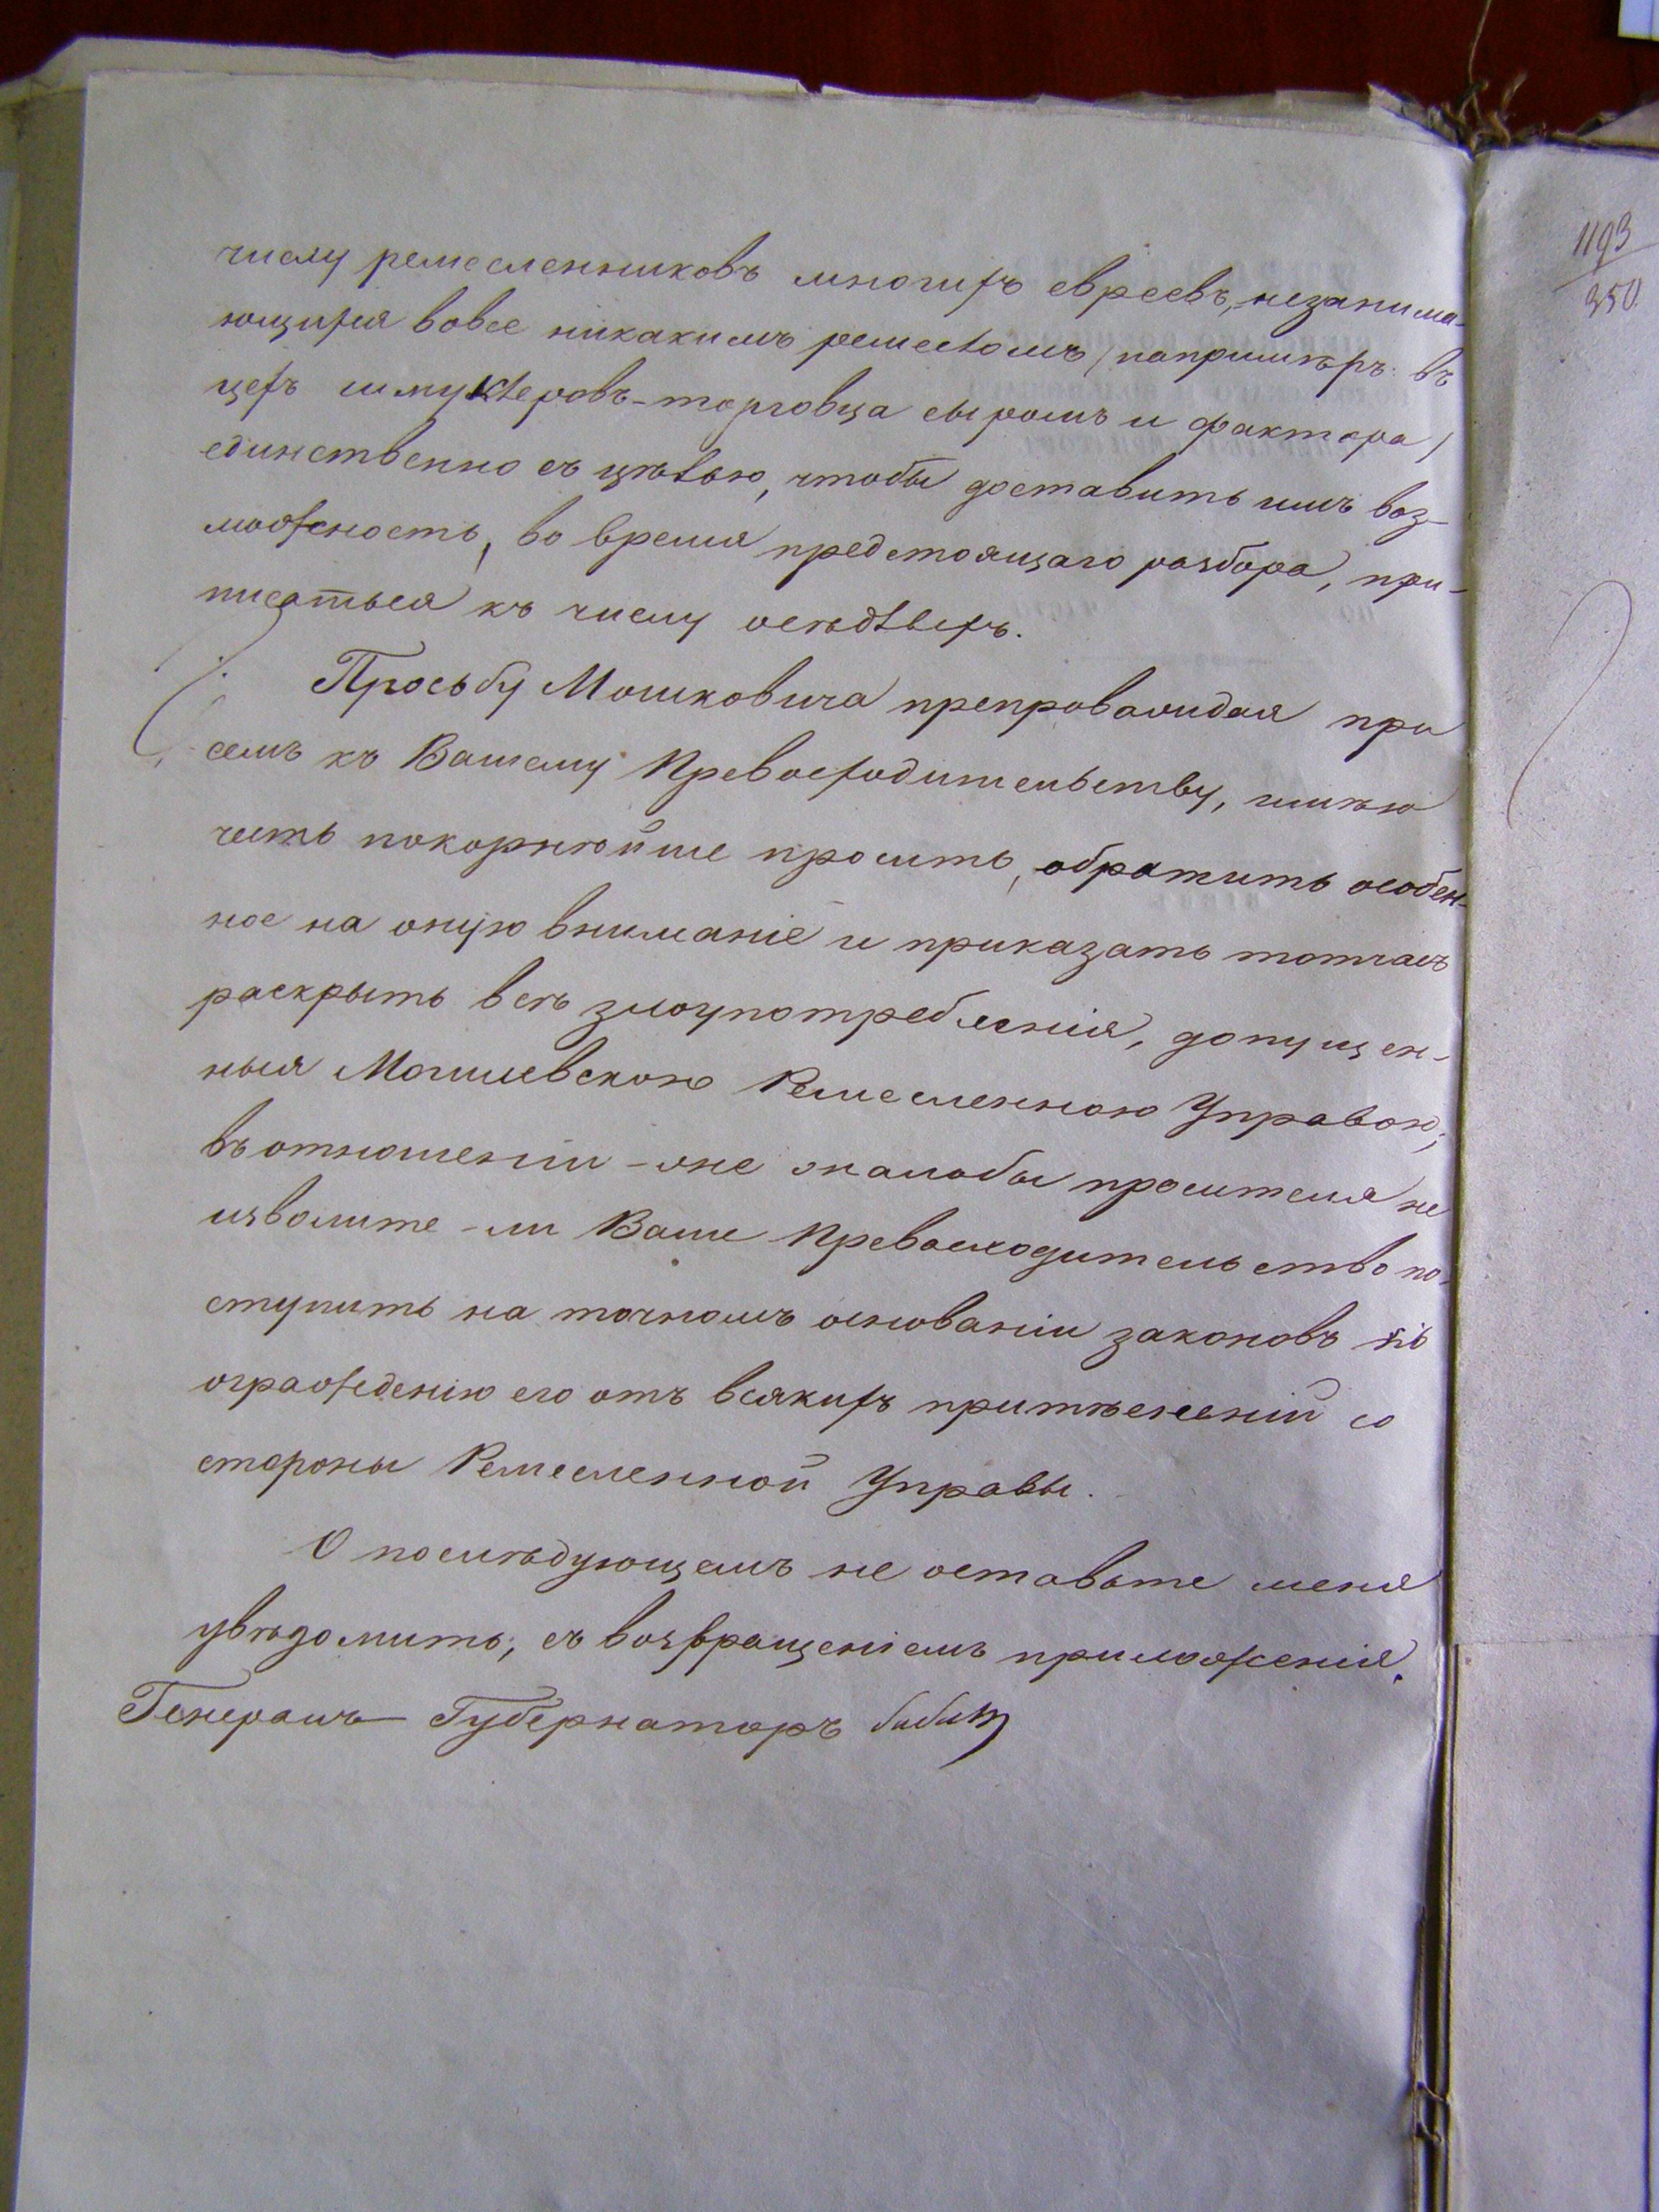 числу ремесленниковъ многихъ евреевъ, незанима-
ющихся вовсе никакимъ ремесломъ /напримѣръ: въ
цехъ шмуклеровъ-торговца сыромъ и фактора/
единственно съ цѣлью, чтобы доставить имъ воз-
можность, во время предстоящаго разбора, при-
писаться къ числу осѣдлыхъ.
Просьбу Мошковича препровождая при
семъ къ Вашему Превосходительству, имѣю
честь покорнѣйше просить, обратить особен-
ное на оную вниманіе и приказать тотчасъ
раскрыть всѣ злоупотребленія, допущен-
ныя Могилевскою Ремесленною Управою;
въ отношеніи-же жалобы просителя не
изволите-ли Ваше Превосходительство по-
ступить на точномъ основаніи законовъ по
огражденію его отъ всякихъ притѣсненій со
стороны Ремесленной Управы.
О послѣдующемъ не оставьте меня
увѣдомить, съ возвращеніемъ приложенія.
Генералъ Губернаторъ Бибик
1193
350